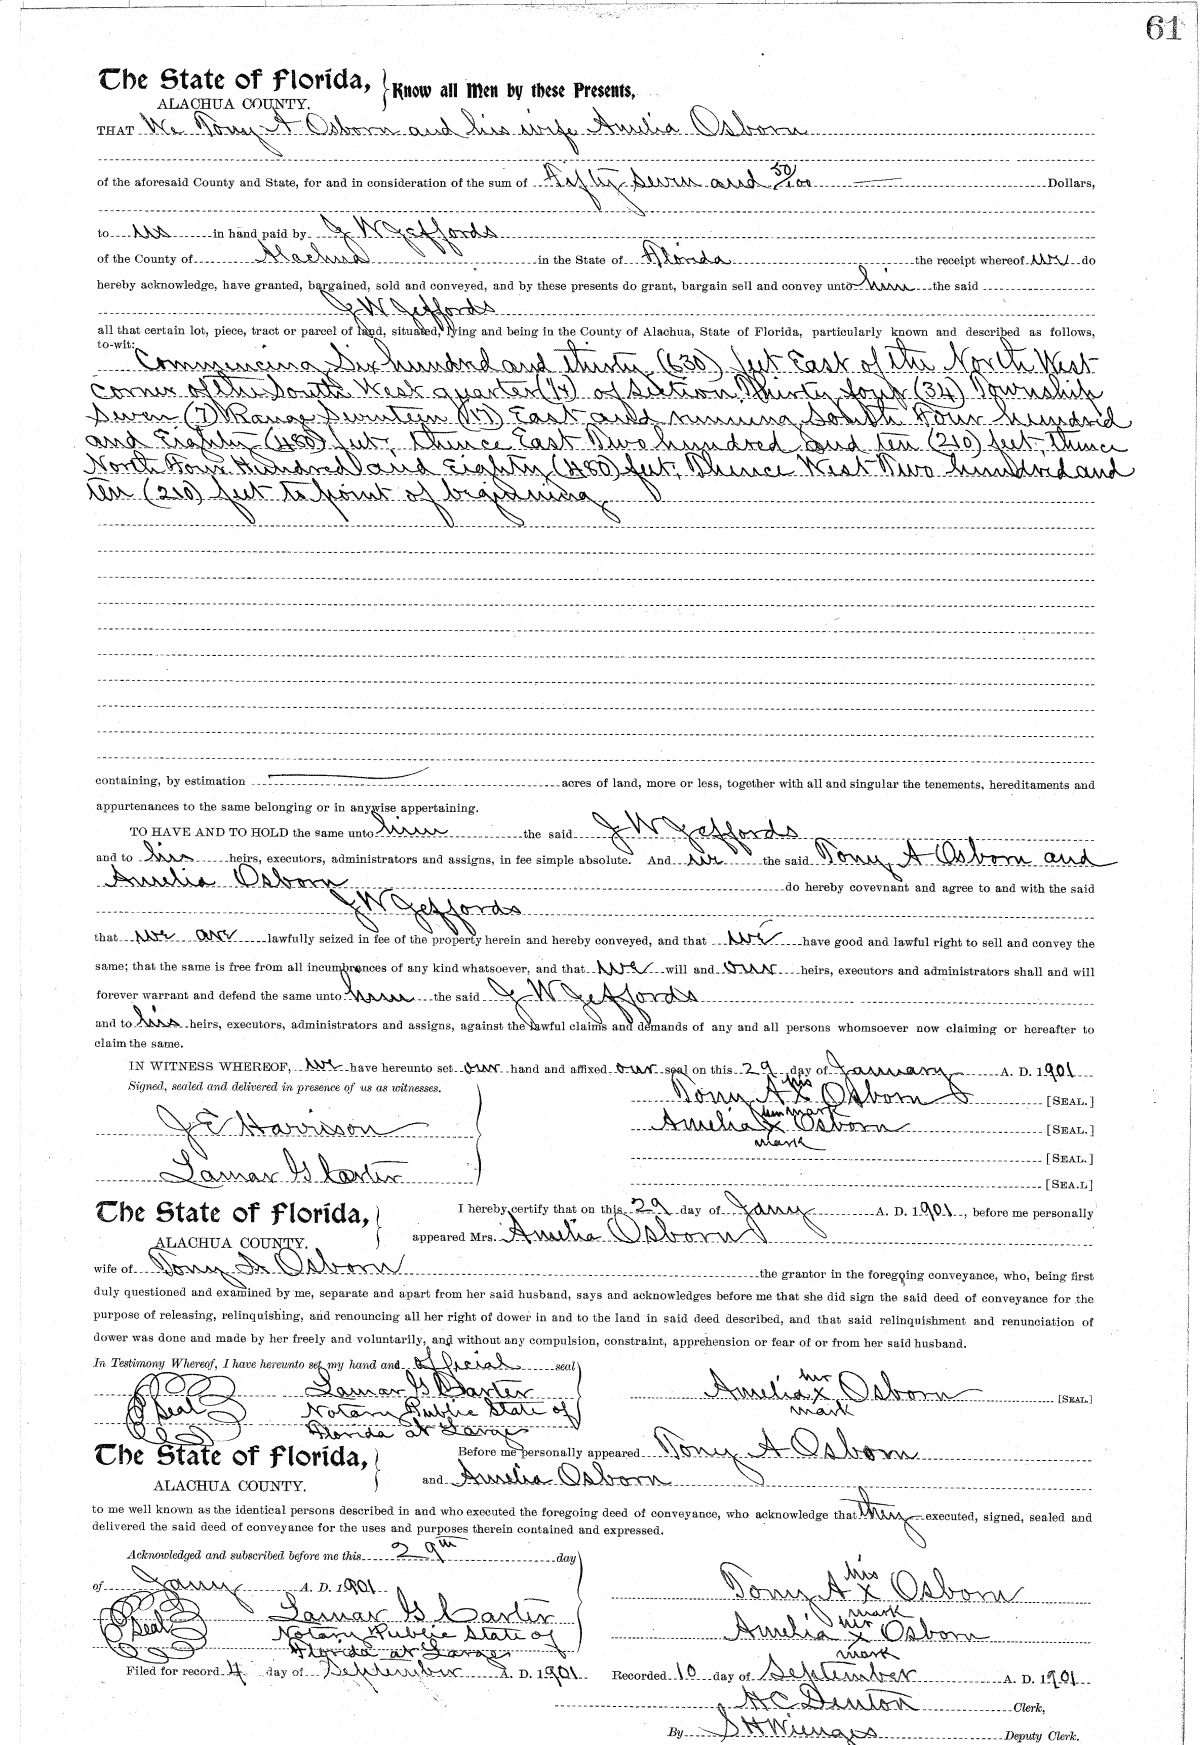 61
The State of Florida, Know all Men by these Presents,
ALACHUA COUNTY.
THAT We Tony A Osborn and his wife Amelia Osborn
of the aforesaid County and State, for and in consideration of the sum of Fifty Seven and 50/100 Dollars,
to us in hand paid by J W Jeffords
of the County of Alachua in the State of Florida the receipt whereof we do
hereby acknowledge, have granted, bargained, sold and conveyed, and by these presents do grant, bargain sell and convey unto him the said
J W Jeffords
all that certain lot, piece, tract or parcel of land, situated, lying and being in the County of Alachua, State of Florida, particularly known and described as follows,
to-wit:
Commencing Six hundred and thirty (630) feet East of the North West
corner of the South West quarter (1/4) of Section Thirty four (34) Township
Seven (7) Range Seventeen (17) East and running South Four hundred
and Eighty (480) feet, thence East Two hundred and ten (210) feet, thence
North Four Hundred and Eighty (480) feet, Thence West Two hundred and
ten (210) feet to point of beginning
containing, by estimation acres of land, more or less, together with all and singular the tenements, hereditaments and
appurtenances to the same belonging or in anywise appertaining.
TO HAVE AND TO HOLD the same unto him the said J W Jeffords
and to his heirs, executors, administrators and assigns, in fee simple absolute. And we the said Tony A Osborn and
Amelia Osborn do hereby covevnant and agree to and with the said
J W Jeffords
that we are lawfully seized in fee of the property herein and hereby conveyed, and that we have good and lawful right to sell and convey the
same; that the same is free from all incumbrances of any kind whatsoever, and that we will and our heirs, executors and administrators shall and will
forever warrant and defend the same unto him the said J W Jeffords
and to his heirs, executors, administrators and assigns, against the lawful claims and demands of any and all persons whomsoever now claiming or hereafter to
claim the same.
IN WITNESS WHEREOF, we have hereunto set our hand and affixed our seal on this 29 day of January A. D. 1901
Signed, sealed and delivered in presence of us as witnesses.
his
Tony A X Osborn [SEAL.]
mark
J E Harrison
her
Amelia X Osborn [SEAL.]
mark
[SEAL.]
Lamar G Carter
[SEA.L]
The State of Florida, I hereby certify that on this 29 day of Jany A. D. 1901, before me personally
ALACHUA COUNTY. appeared Mrs. Amelia Osborn
wife of Tony A Osborn the grantor in the foregoing conveyance, who, being first
duly questioned and examined by me, separate and apart from her said husband, says and acknowledges before me that she did sign the said deed of conveyance for the
purpose of releasing, relinquishing, and renouncing all her right of dower in and to the land in said deed described, and that said relinquishment and renunciation of
dower was done and made by her freely and voluntarily, and without any compulsion, constraint, apprehension or fear of or from her said husband.
In Testimony Whereof, I have hereunto set my hand and official seal
Seal Lamar G Carter
Notary Public State of
Florida at Large
her
Amelia X Osborn [SEAL.]
mark
The State of Florida, Before me personally appeared Tony A Osborn
ALACHUA COUNTY. and Amelia Osborn
to me well known as the identical persons described in and who executed the foregoing deed of conveyance, who acknowledge that they executed, signed, sealed and
delivered the said deed of conveyance for the uses and purposes therein contained and expressed.
Acknowledged and subscribed before me this 29th day
of Jany A. D. 1901
Seal Lamar G Carter
Notary Public State of
Florida at Large
his
Tony A X Osborn
mark
her
Amelia X Osborn
mark
Filed for record 4 day of September A. D. 1901 Recorded 10 day of September A. D. 1901
H C Denton Clerk,
By S H Wienges Deputy Clerk.